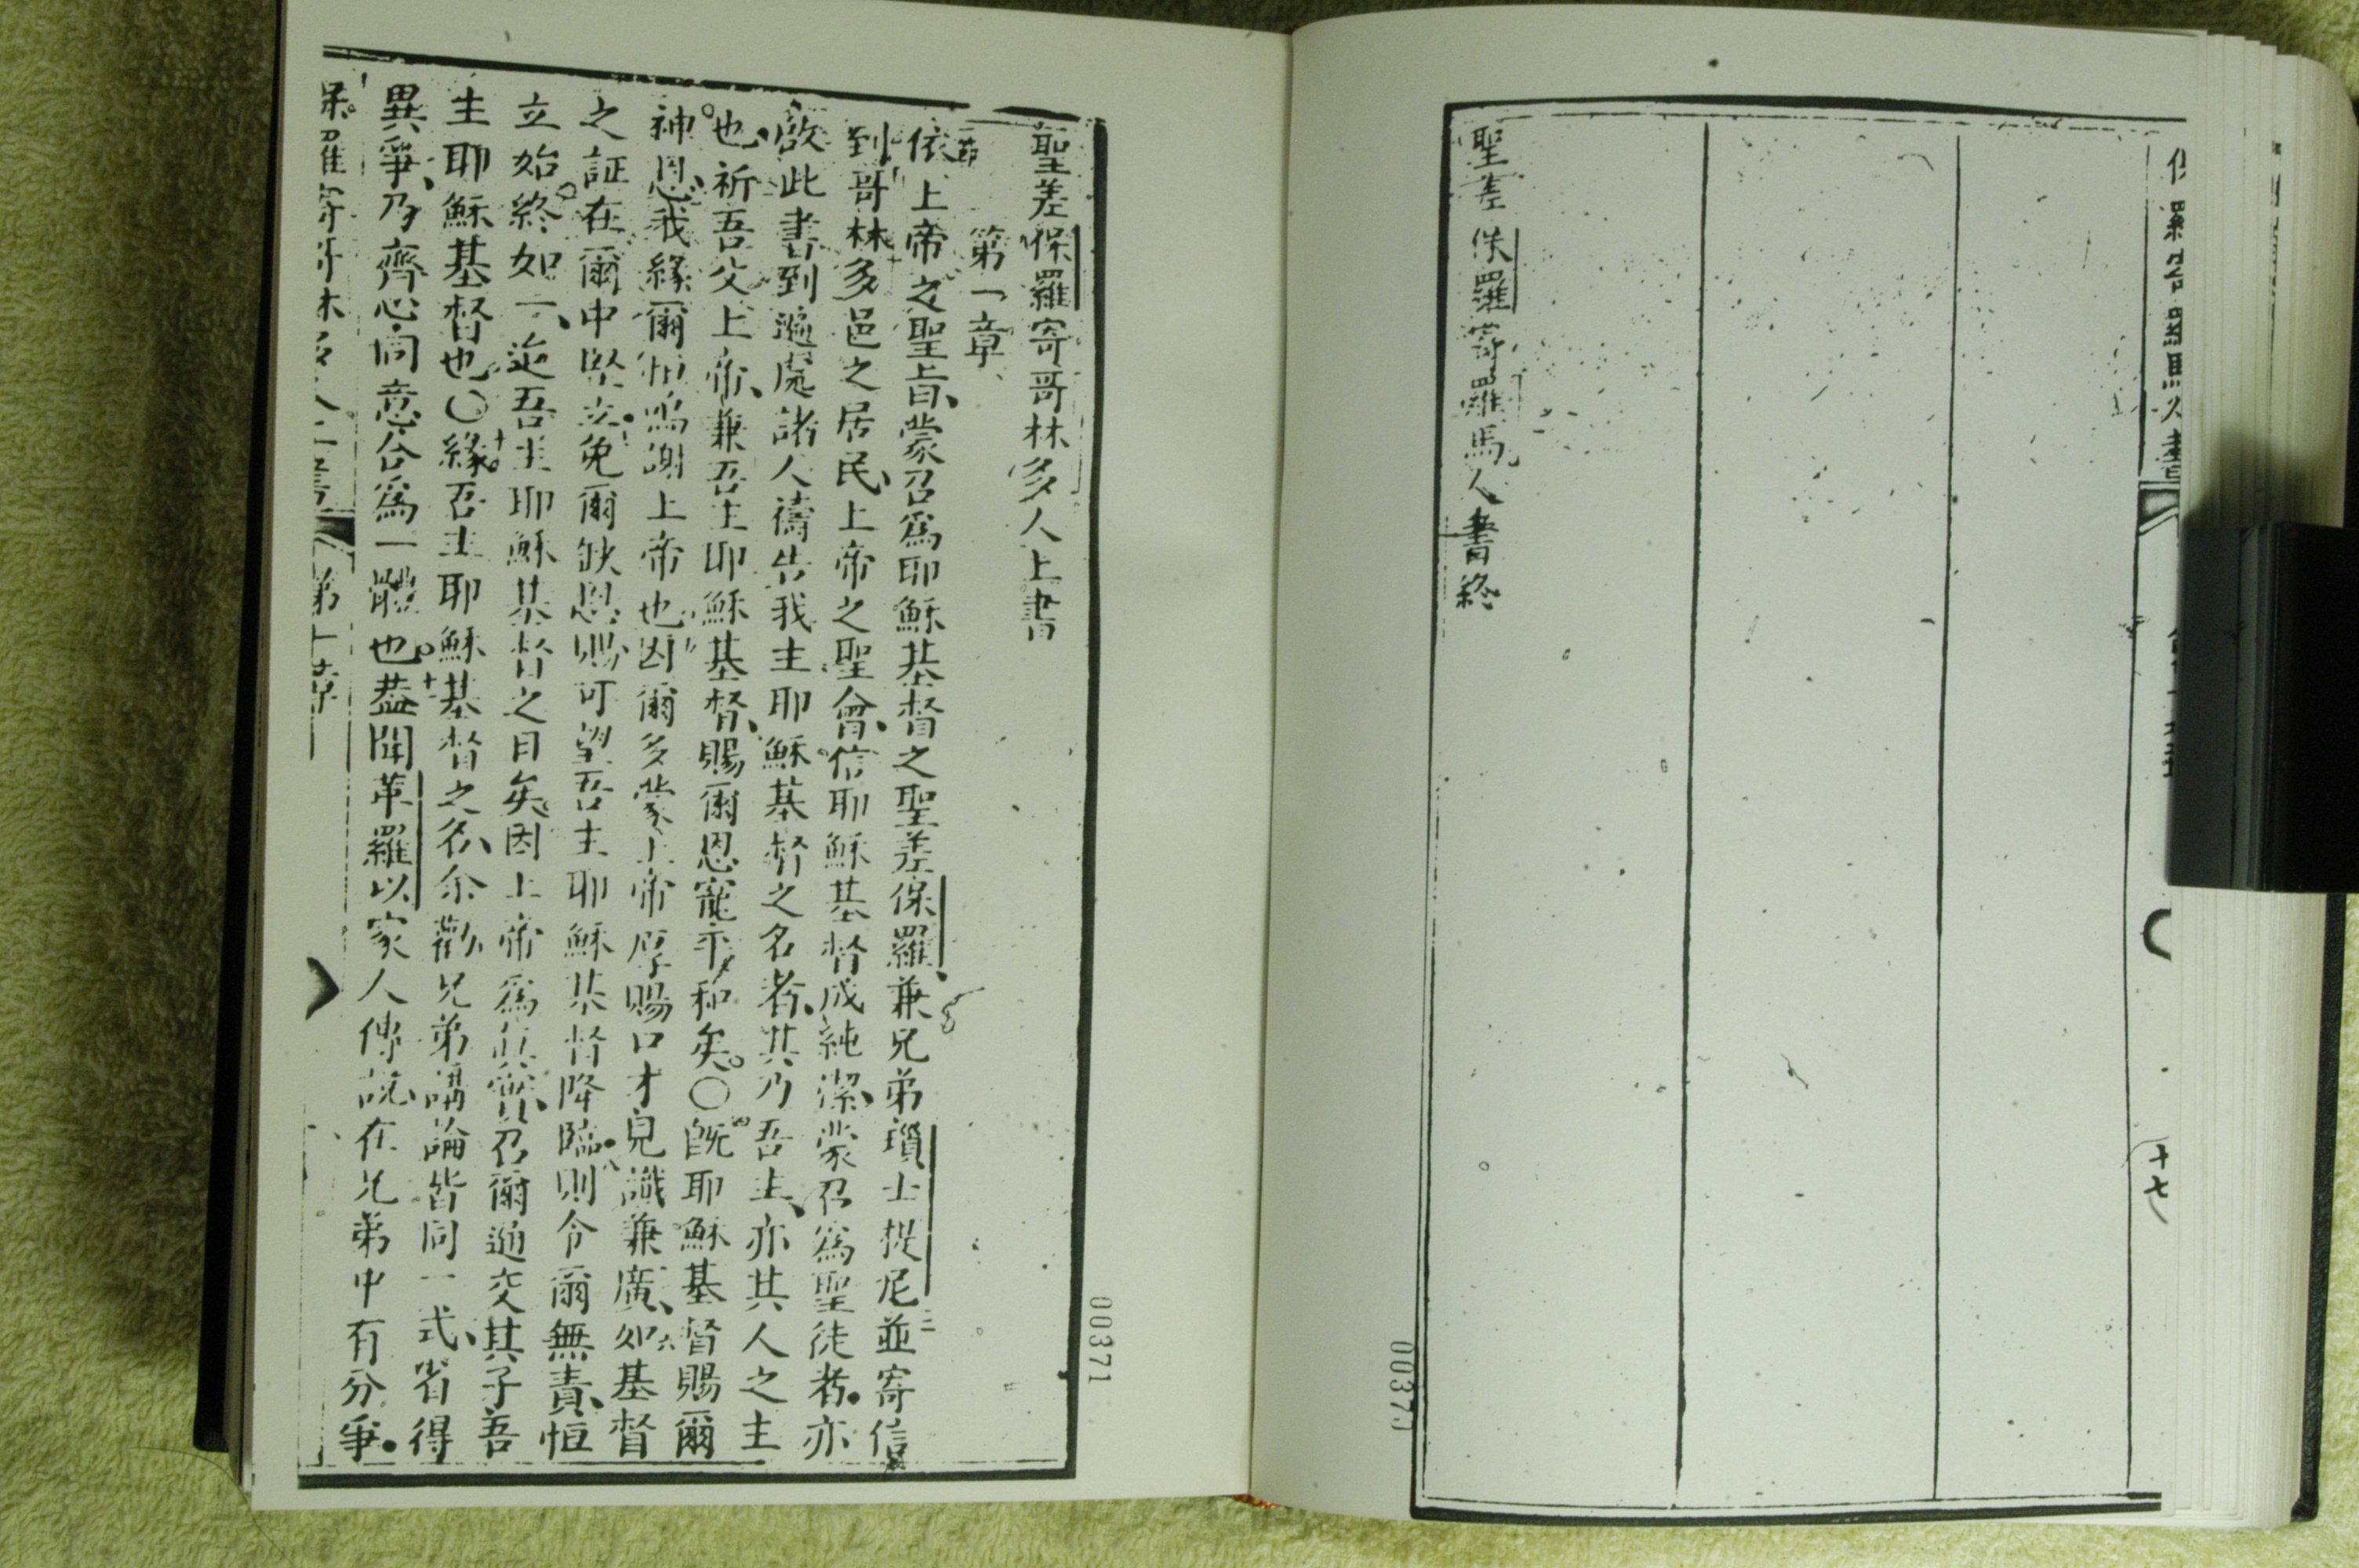 羅馬人書
十七
聖差保羅寄羅馬人書終
00370
聖差保羅寄哥林多人上書
第一章
依上帝之聖旨、蒙召爲耶穌基督之聖差保羅、兼兄弟瑣士提尼並寄信
到哥林多邑之居民、上帝之聖會、信耶穌基督成純潔、蒙召爲聖徒者、亦
啟此書到遍處諸人禱告我主耶穌基督之名者、其乃吾主、亦其人之主
也、祈吾父上帝、兼吾主耶穌基督、賜爾恩寵平和矣。〇旣耶穌基督賜爾
神恩、我緣爾恒鳴謝上帝也、因爾多蒙上帝厚賜口才見識兼廣、如基督
之証在爾中堅立、免爾缺恩賜、可望吾主耶穌基督降臨、則令爾無責、恒
立始終如一、迨吾主耶穌基督之日矣。因上帝爲真實、召爾通交其子吾
主耶穌基督也。〇緣吾主耶穌基督之名、余勸兄弟講論皆同一式、省得
異爭、乃齊心同意合爲一體也。葢聞革羅以家人傳說、在兄弟中有分爭。
保羅寄哥林多人上書 第一章
00371